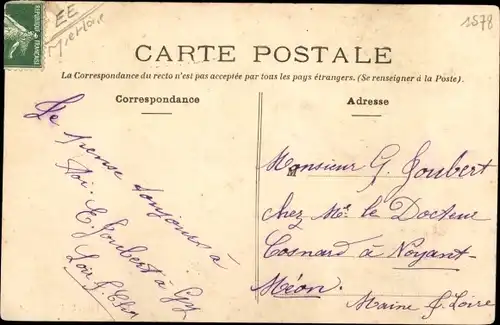 EE
M et Loire
1578
CARTE POSTALE
La Correspondance du recto n'est pas acceptée par tous les pays étrangers. (Se renseigner à la Poste).
Correspondance
Je pense toujours à
toi. E. Joubert à
Loir & Cher
Adresse
Monsieur G. Joubert
chez Mr. le Docteur
Cosnard à Noyant-
Méon.
Maine & Loire